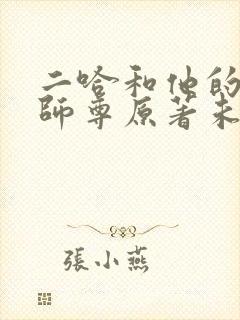 二哈和他的
師尊原著未
張小燕